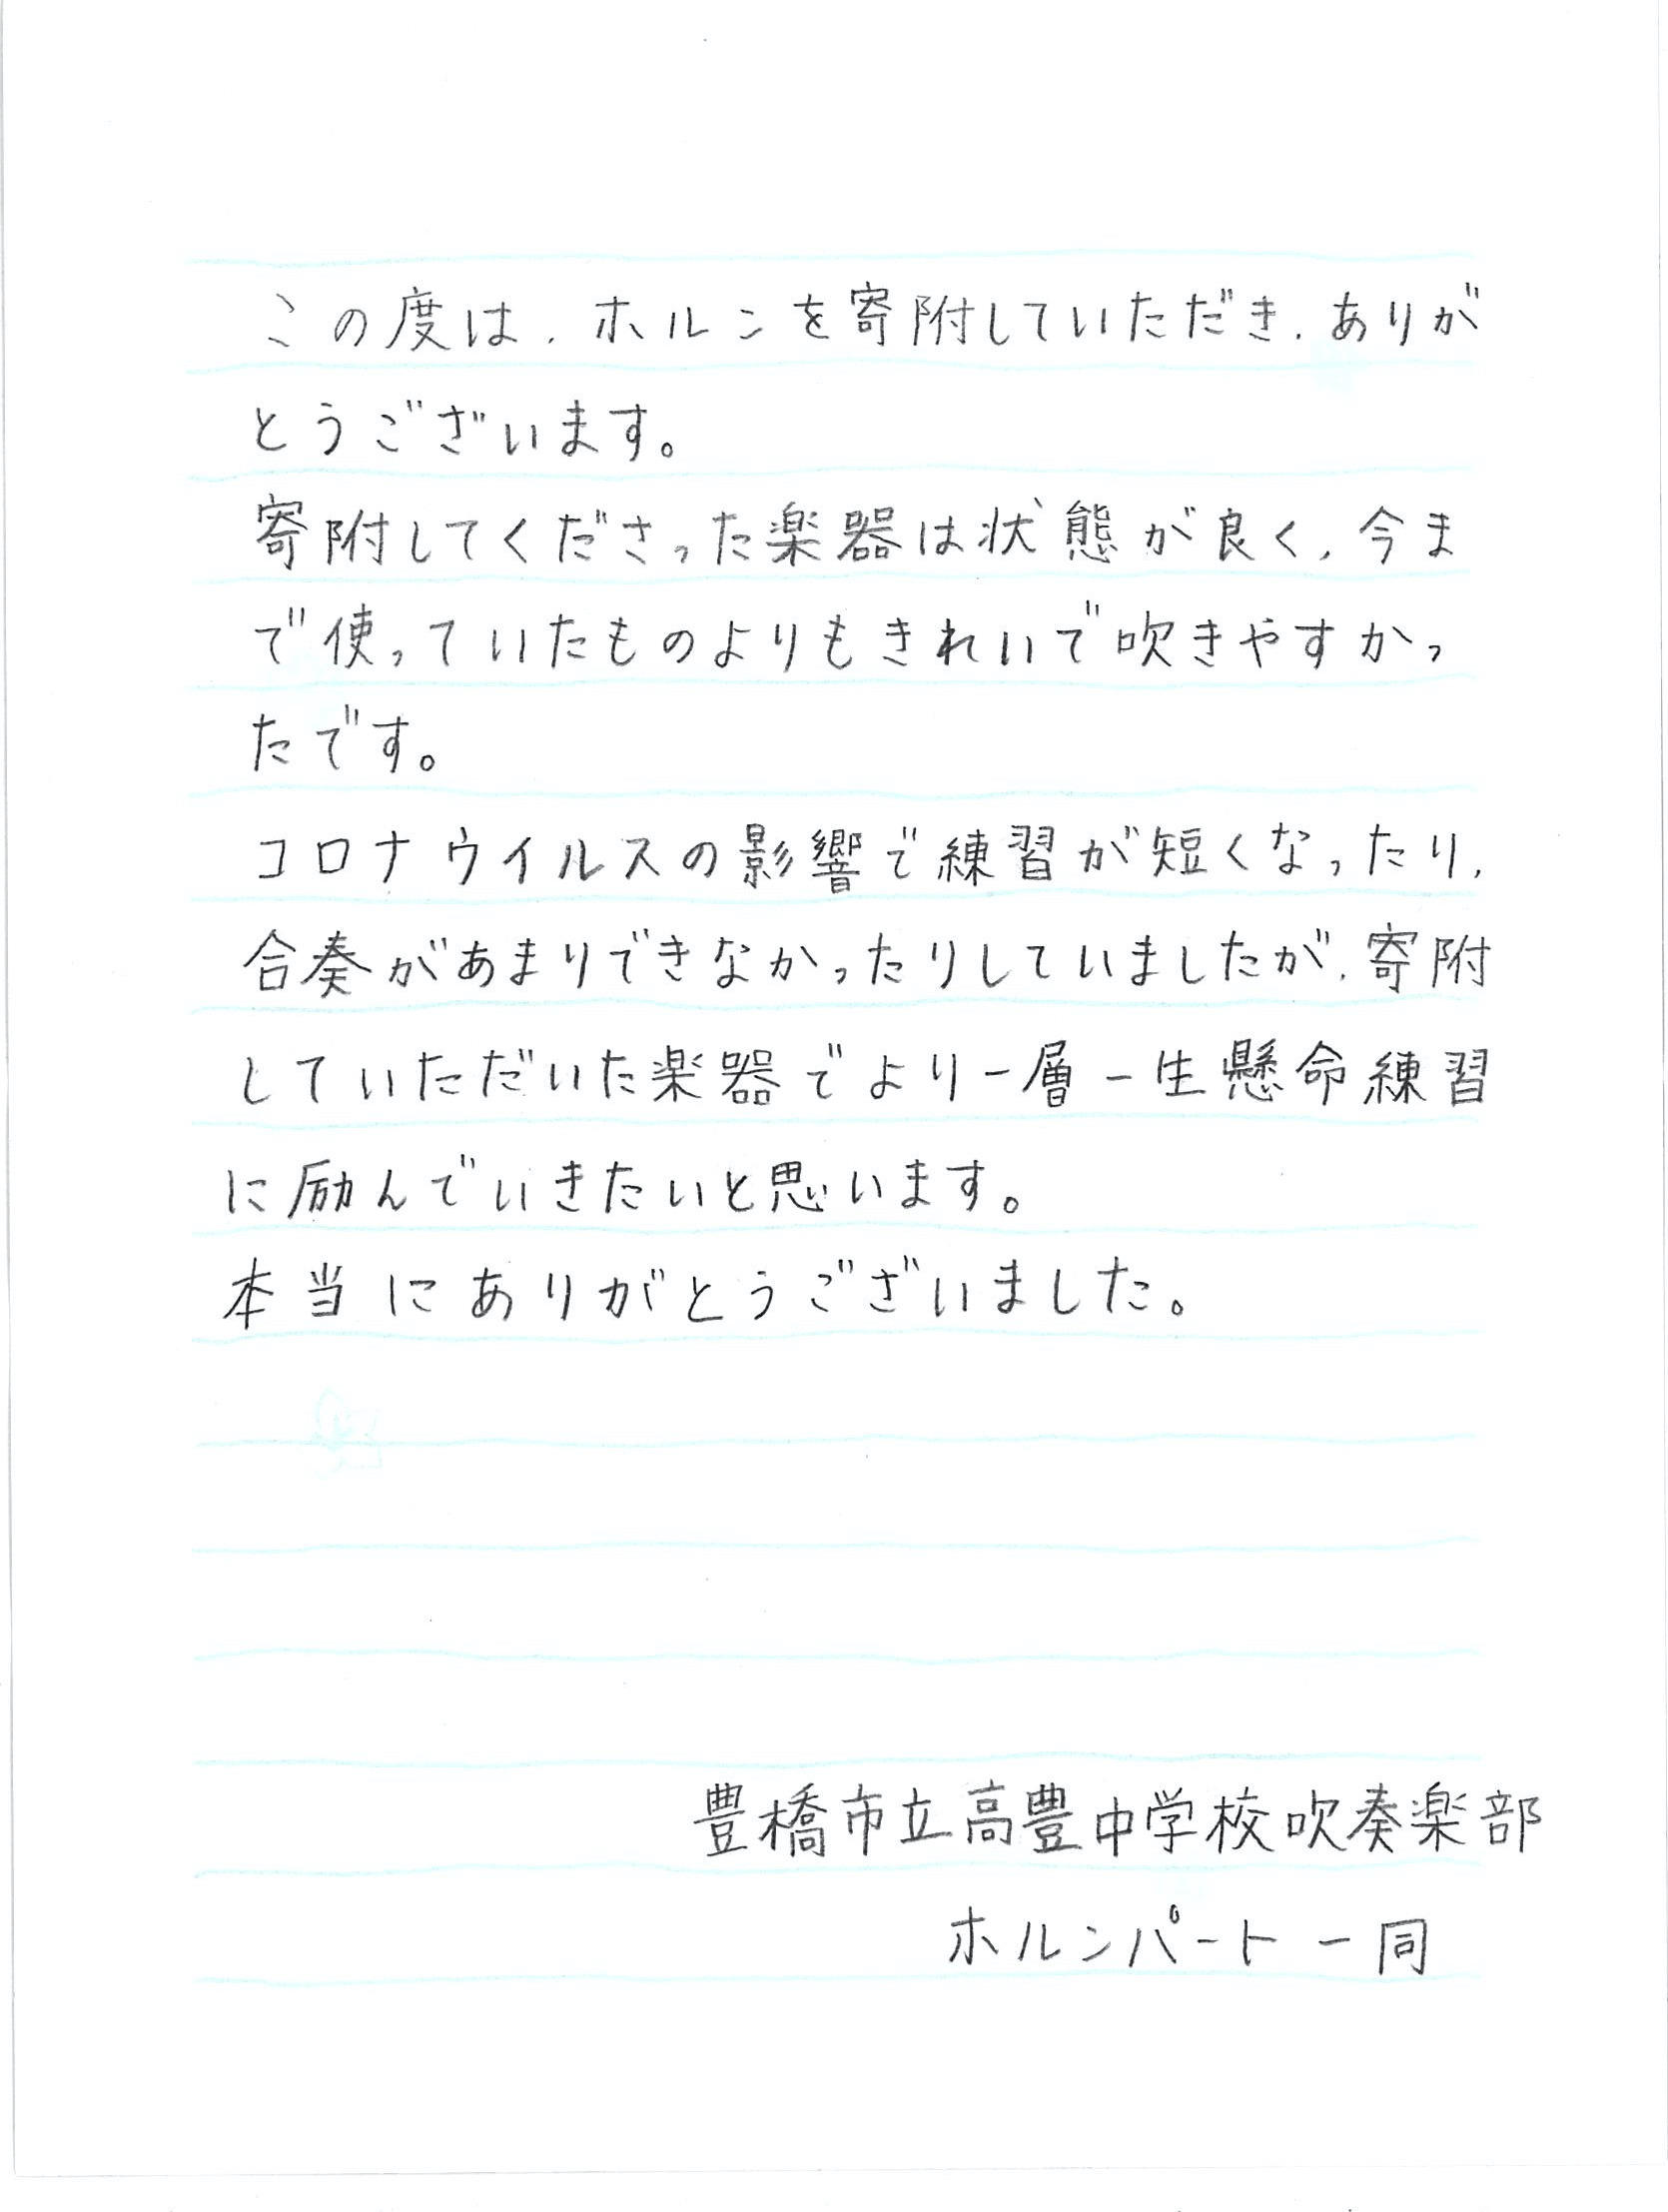 この度は、ホルンを寄附していただき、ありが
とうございます。
寄附してくださった楽器は状態が良く、今ま
で使っていたものよりもきれいで吹きやすかっ
たです。
コロナウイルスの影響で練習が短くなったり、
合奏があまりできなかったりしていましたが、寄附
していただいた楽器でより一層一生懸命練習
に励んでいきたいと思います。
本当にありがとうございました。
豊橋市立高豊中学校吹奏楽部
ホルンパート一同